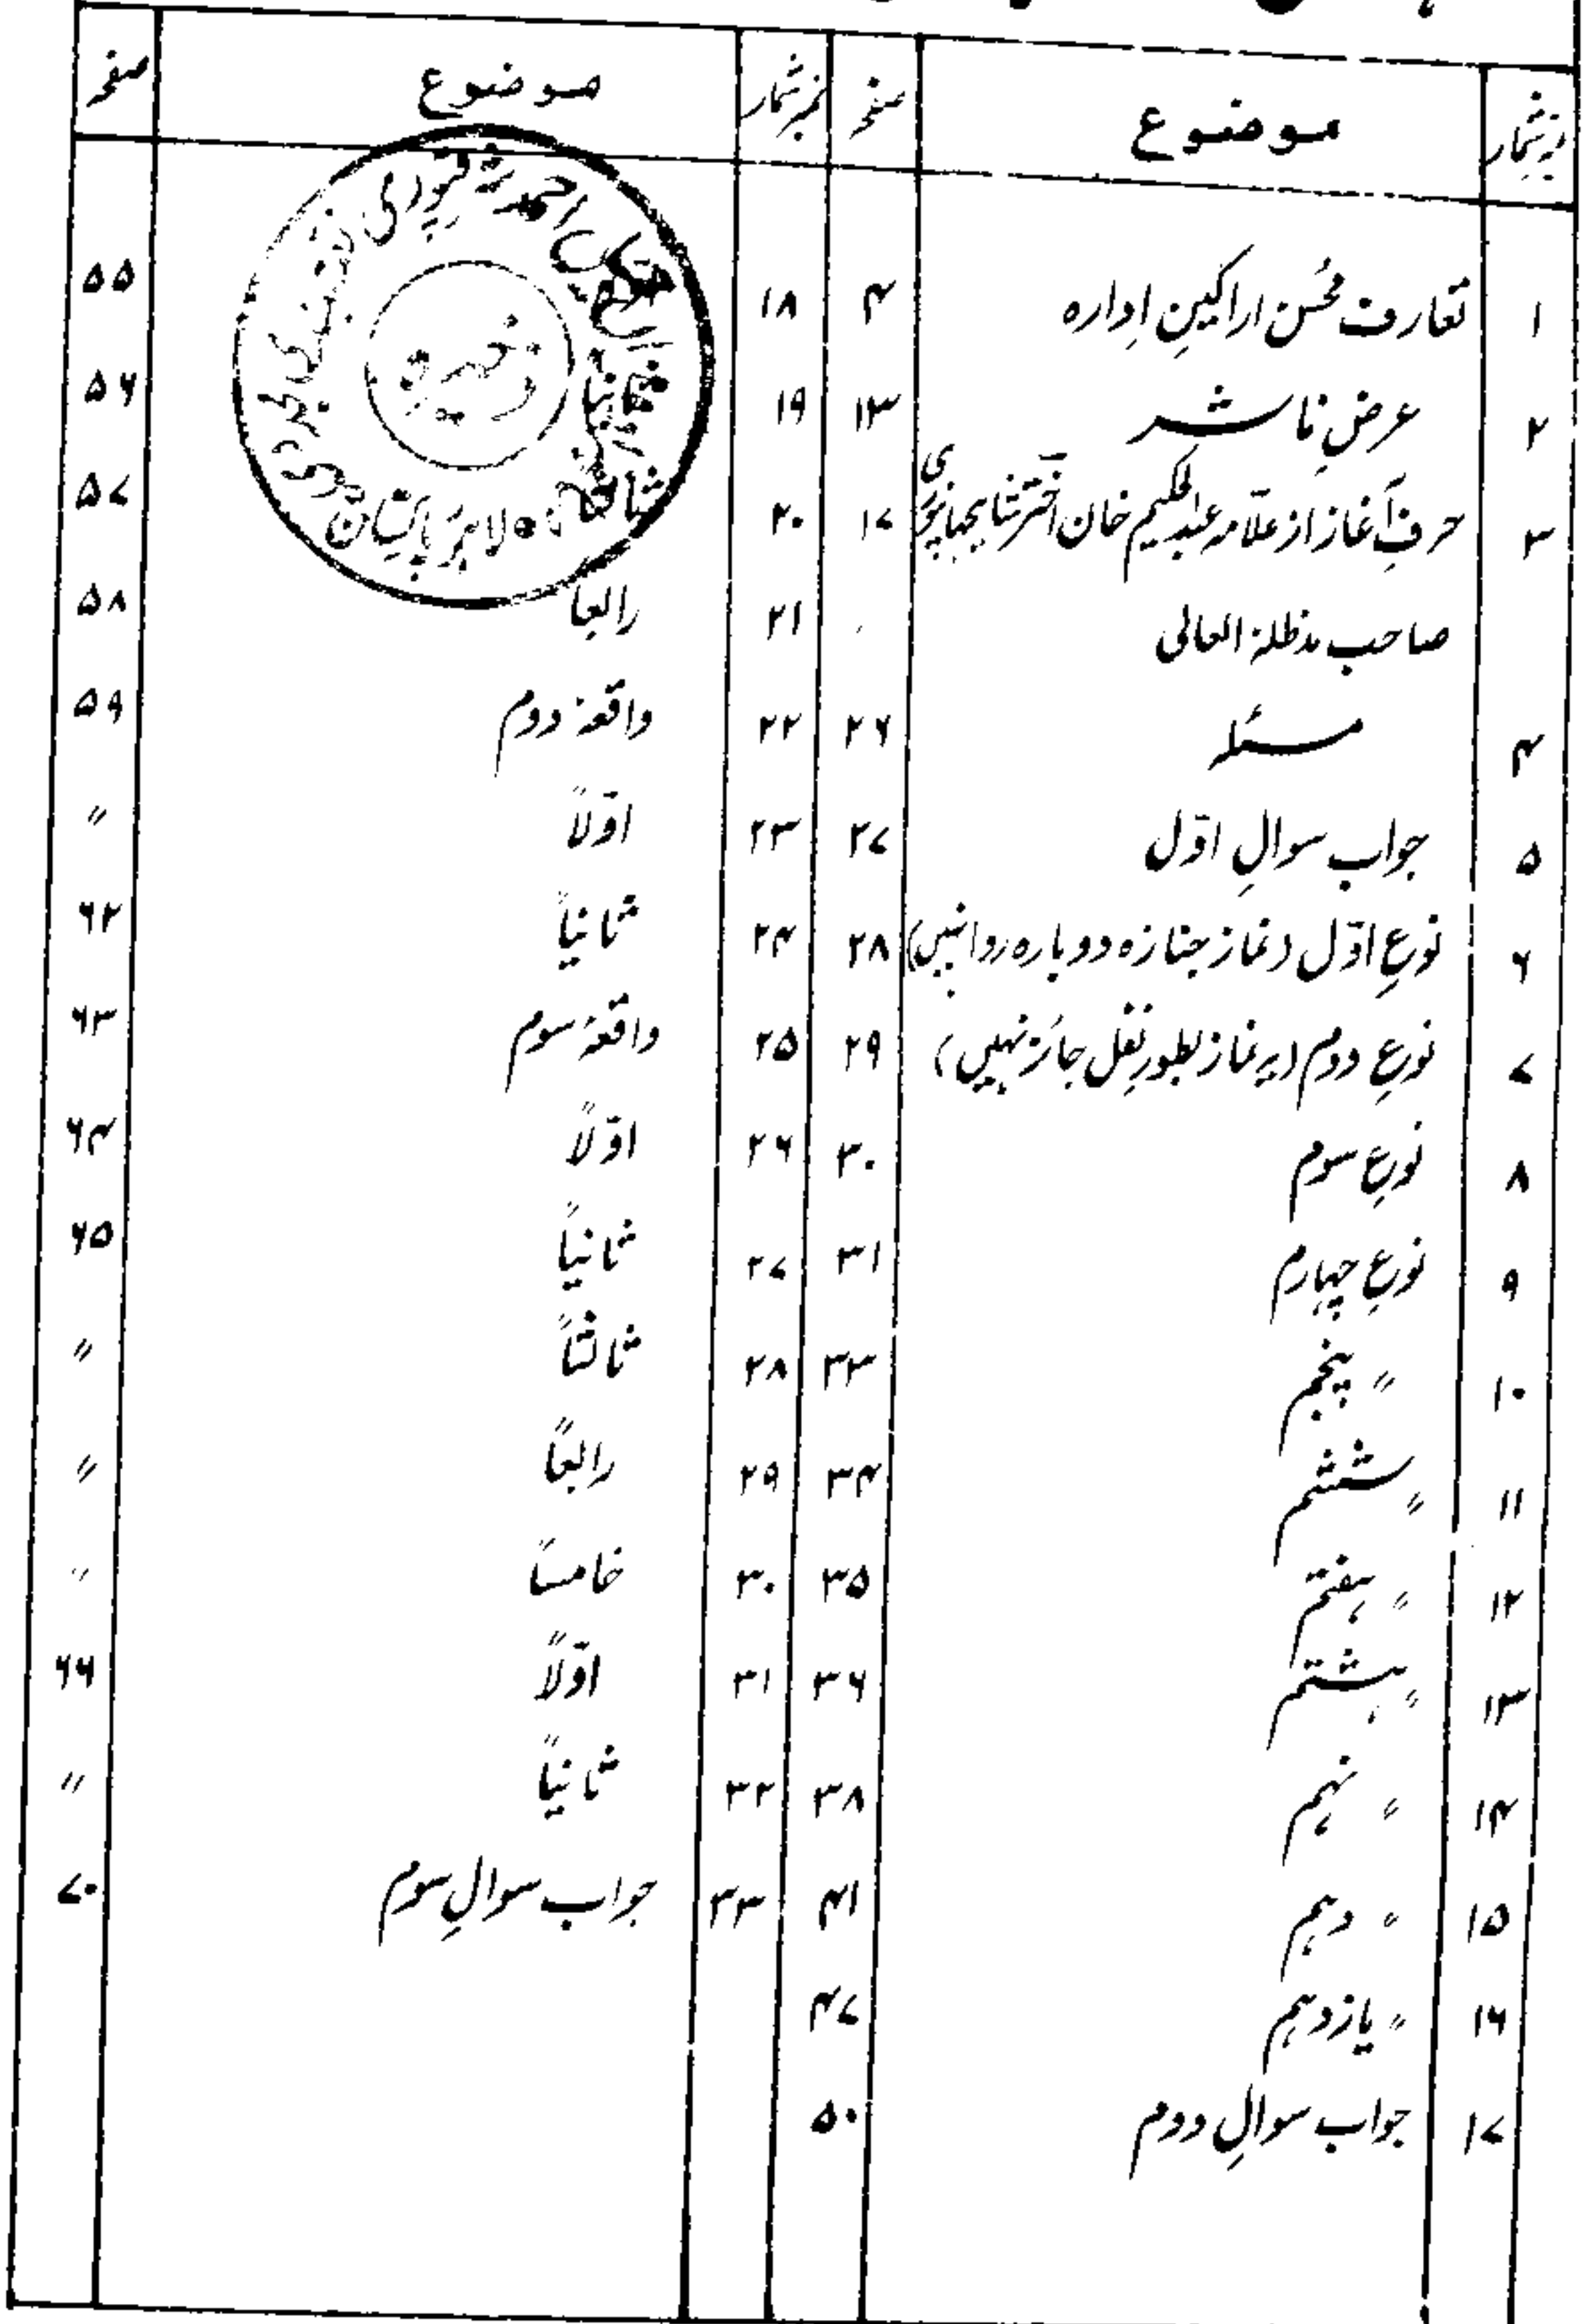 نمبر شمار موضوع صفحہ
۱ تعارف محسن اراکینِ اداره ۴
۲ عرضِ ناشر ۱۳
۳ حرفِ آغاز از علامہ عبدالحکیم خان اختر شاہجہانپوری ۱۷
صاحب مدظلہ العالی
۴ مسئلہ ۲۶
۵ جواب سوالِ اوّل ۲۷
۶ نوعِ اوّل (نماز جنازہ دوبارہ روا نہیں) ۲۸
۷ نوعِ دوم (یہ نماز بطورِ نفل جائز نہیں) ۲۹
۸ نوعِ سوم ۳۰
۹ نوعِ چہارم ۳۱
۱۰ ״ پنجم ۳۳
۱۱ ״ ششم ۳۴
۱۲ ״ ہفتم ۳۵
۱۳ ״ ہشتم ۳۶
۱۴ ״ نہم ۳۸
۱۵ ״ دہم ۴۱
۱۶ ״ یازدہم ۴۷
۱۷ جواب سوالِ دوم ۵۰
نمبر شمار موضوع صفحہ
۱۸ ۵۵
۱۹ ثانیاً ۵۶
۲۰ ثالثاً ۵۷
۲۱ رابعاً ۵۸
۲۲ واقعۂ دوم ۵۹
۲۳ اوّلاً ״
۲۴ ثانیاً ۶۲
۲۵ واقعۂ سوم ۶۳
۲۶ اوّلاً ۶۴
۲۷ ثانیاً ۶۵
۲۸ ثالثاً ״
۲۹ رابعاً ״
۳۰ خامساً ״
۳۱ اوّلاً ۶۶
۳۲ ثانیاً ״
۳۳ جواب سوالِ سوم ۷۰
لاہور پاکستان